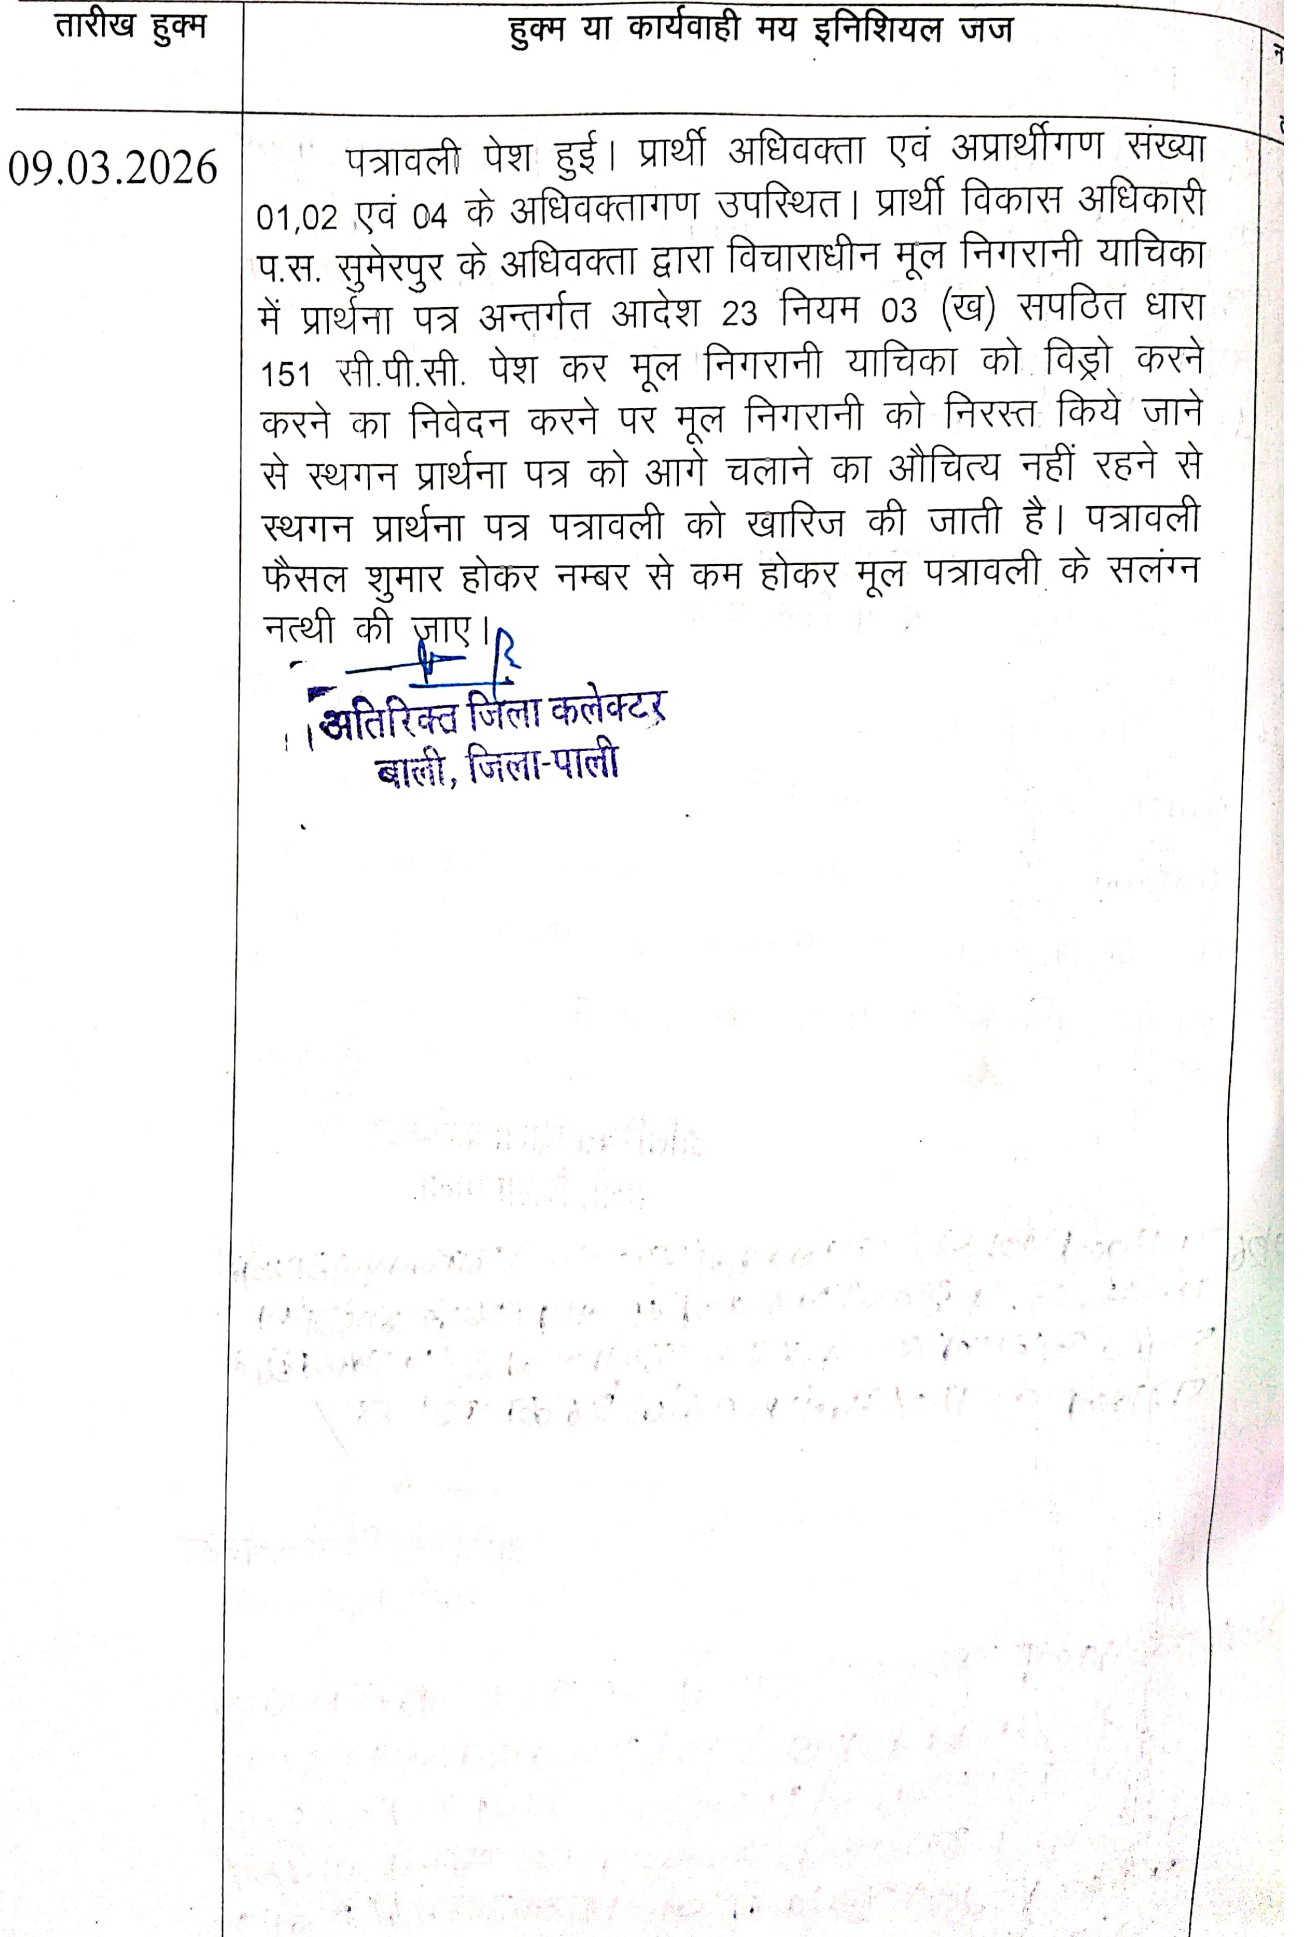 तारीख हुक्म
हुक्म या कार्यवाही मय इनिशियल जज
09.03.2026
पत्रावली पेश हुई। प्रार्थी अधिवक्ता एवं अप्रार्थीगण संख्या
01,02 एवं 04 के अधिवक्तागण उपस्थित। प्रार्थी विकास अधिकारी
प.स. सुमेरपुर के अधिवक्ता द्वारा विचाराधीन मूल निगरानी याचिका
में प्रार्थना पत्र अन्तर्गत आदेश 23 नियम 03 (ख) सपठित धारा
151 सी.पी.सी. पेश कर मूल निगरानी याचिका को विड्रो करने
करने का निवेदन करने पर मूल निगरानी को निरस्त किये जाने
से स्थगन प्रार्थना पत्र को आगे चलाने का औचित्य नहीं रहने से
स्थगन प्रार्थना पत्र पत्रावली को खारिज की जाती है। पत्रावली
फैसल शुमार होकर नम्बर से कम होकर मूल पत्रावली के सलंग्न
नत्थी की जाए।
अतिरिक्त जिला कलेक्टर
बाली, जिला-पाली